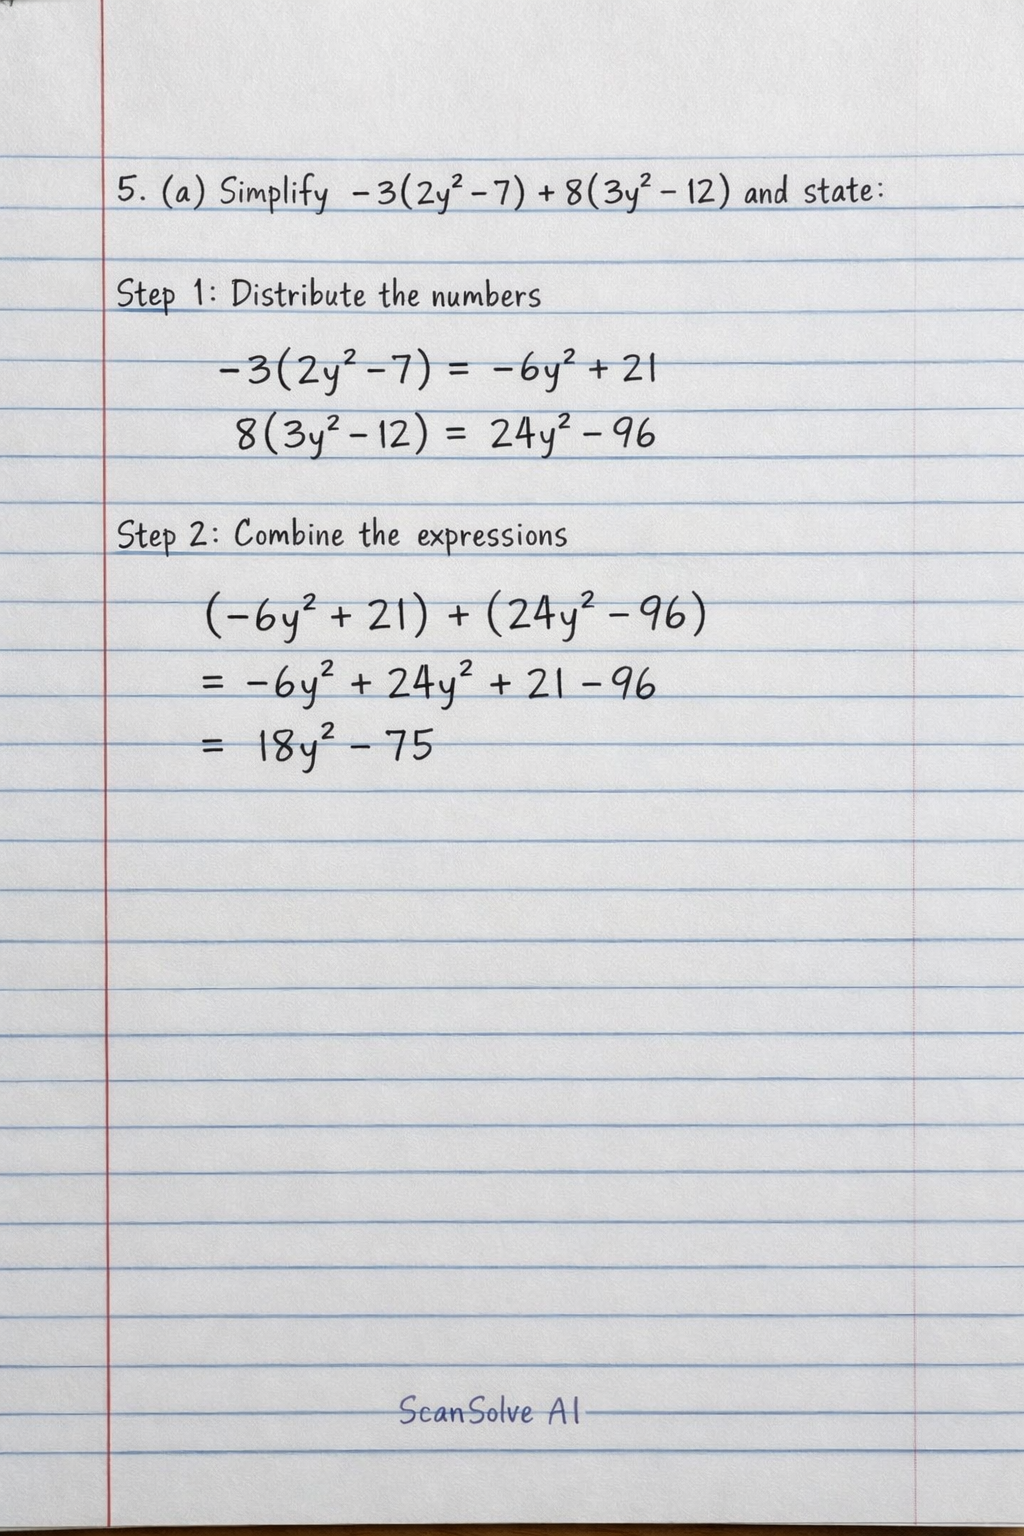 5. (a) Simplify -3(2y² - 7) + 8(3y² - 12) and state:
Step 1: Distribute the numbers
-3(2y² - 7) = -6y² + 21
8(3y² - 12) = 24y² - 96
Step 2: Combine the expressions
(-6y² + 21) + (24y² - 96)
= -6y² + 24y² + 21 - 96
= 18y² - 75
ScanSolve AI